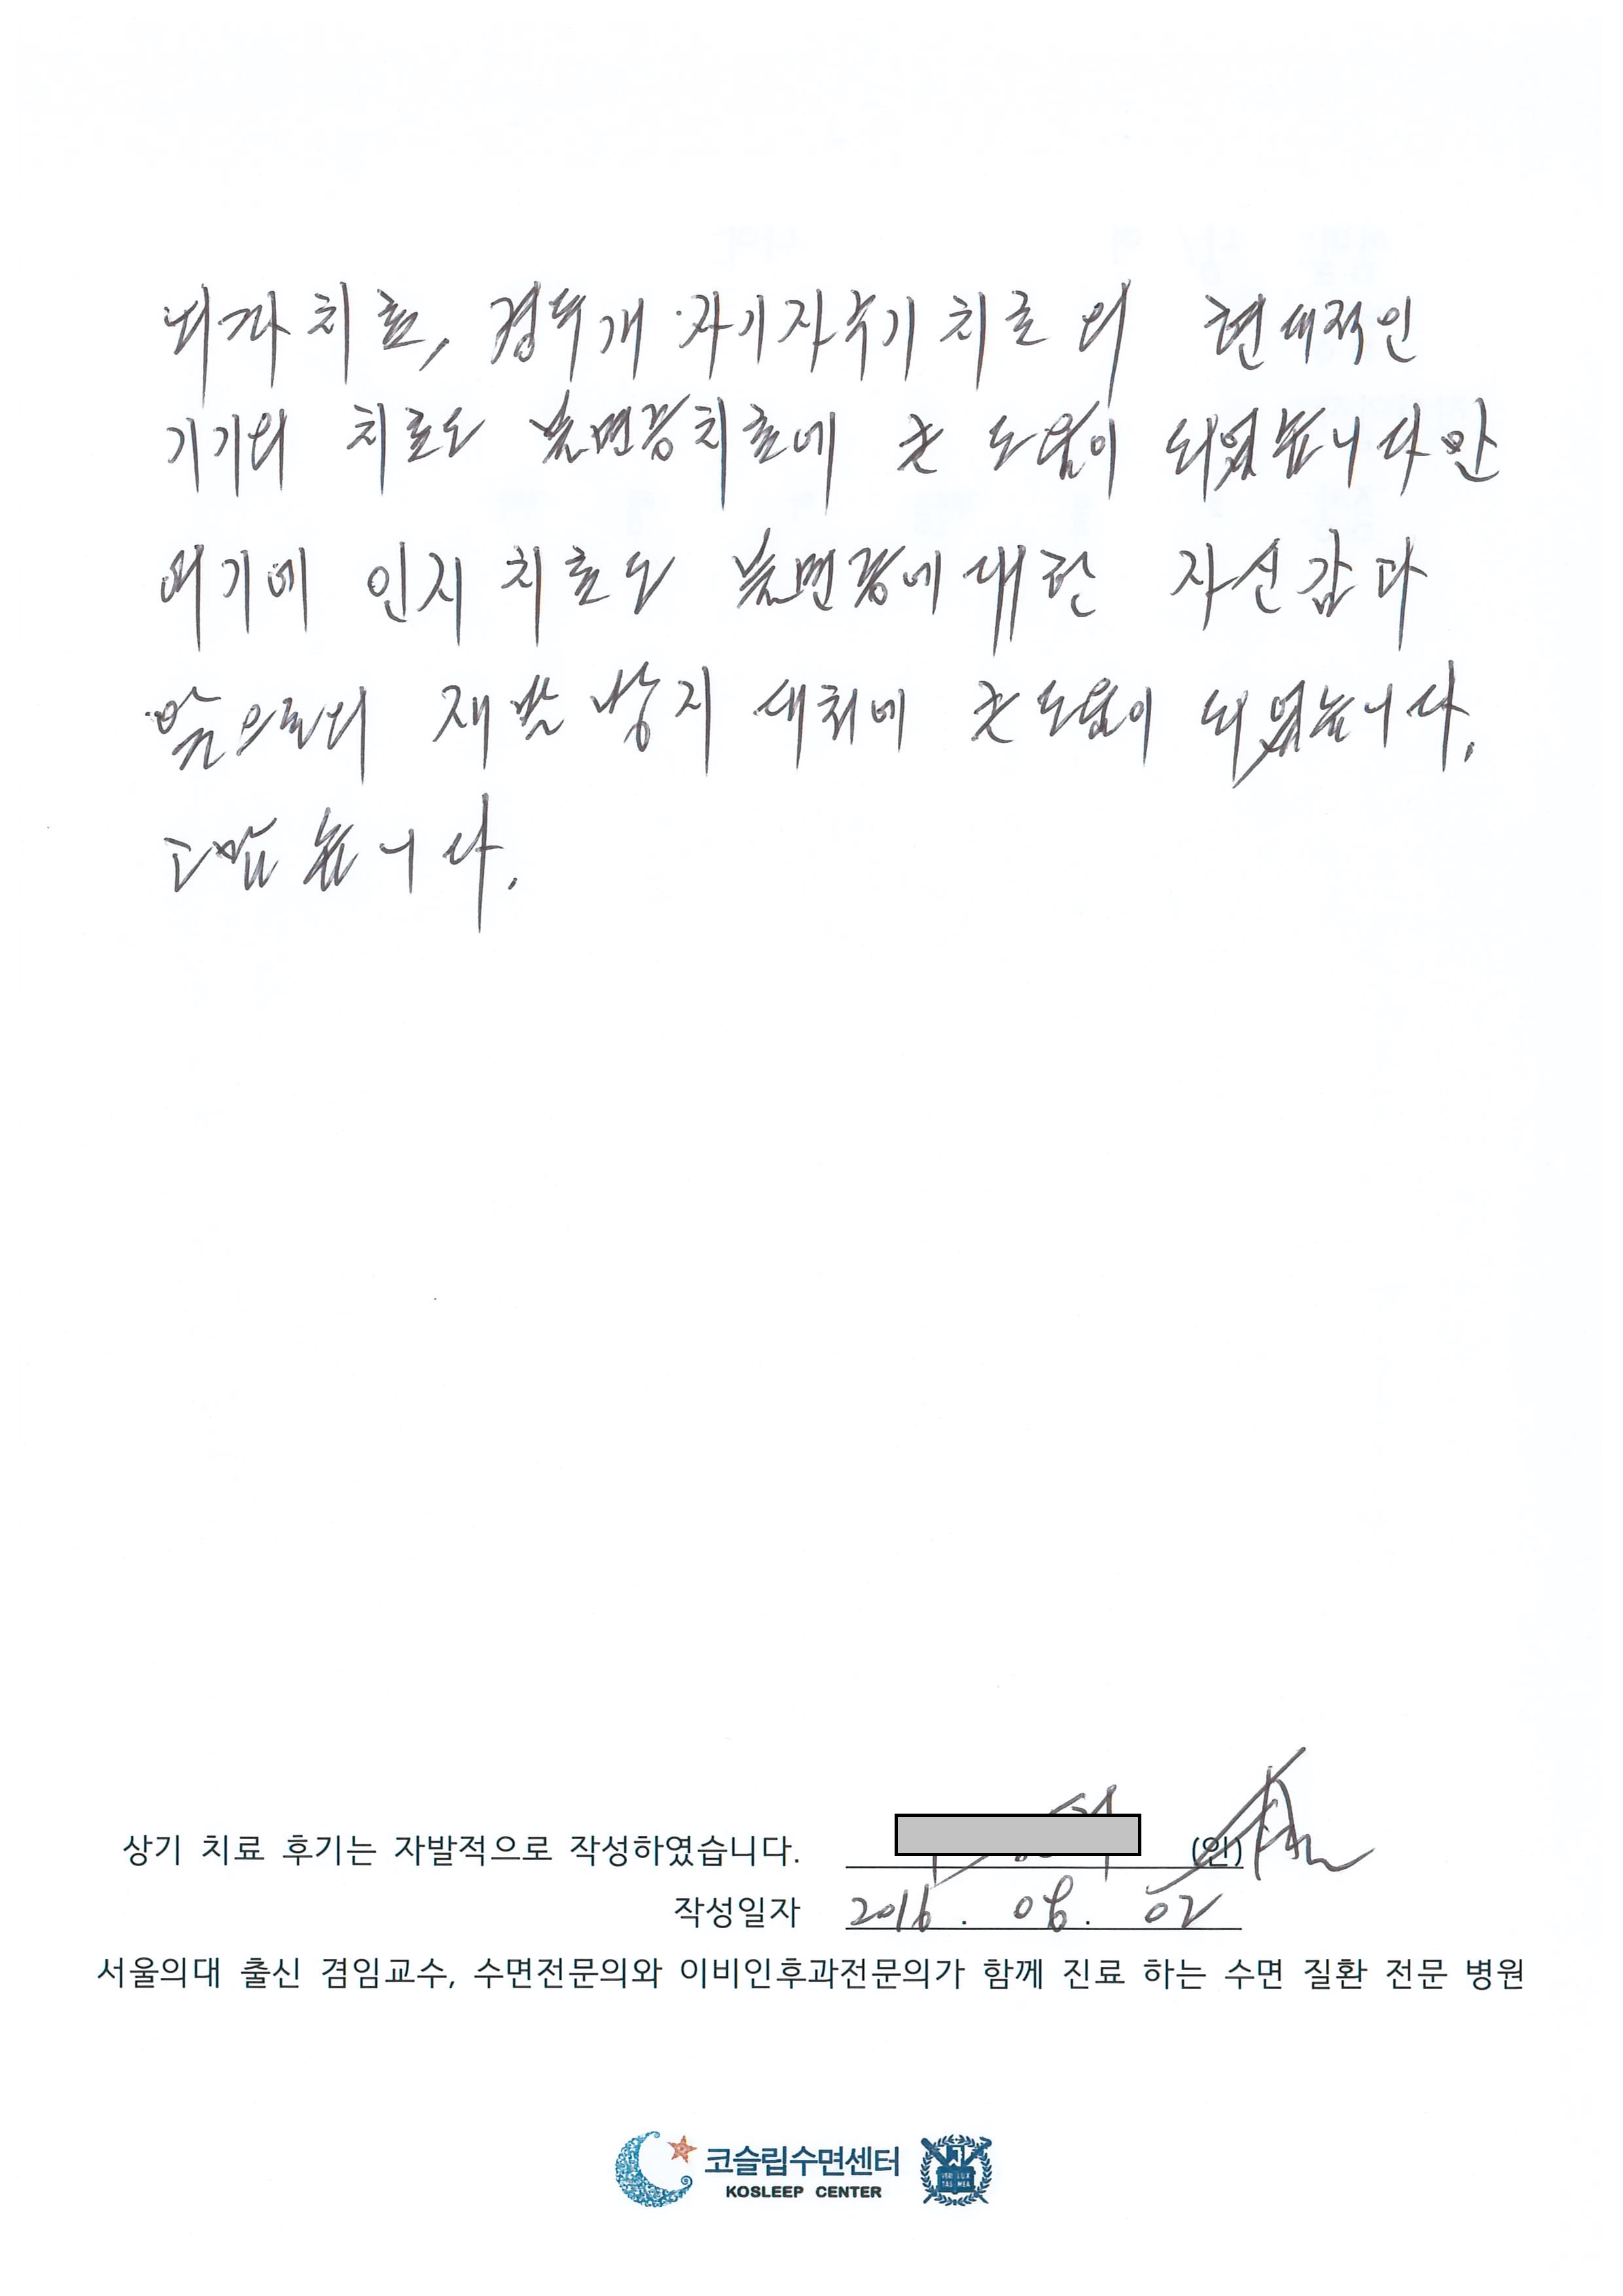 뇌파치료, 경두개 자기자극기 치료 의 현대적인
기기의 치료도 불면증치료에 큰 도움이 되었습니다만
여기에 인지 치료도 불면증에 대한 자신감과
앞으로의 재발 방지 대처에 큰 도움이 되었습니다.
고맙습니다.
상기 치료 후기는 자발적으로 작성하였습니다. (인)
작성일자 2016. 06. 02
서울의대 출신 겸임교수, 수면전문의와 이비인후과전문의가 함께 진료 하는 수면 질환 전문 병원
코슬립수면센터
KOSLEEP CENTER
VERI LUX
TAS MEA